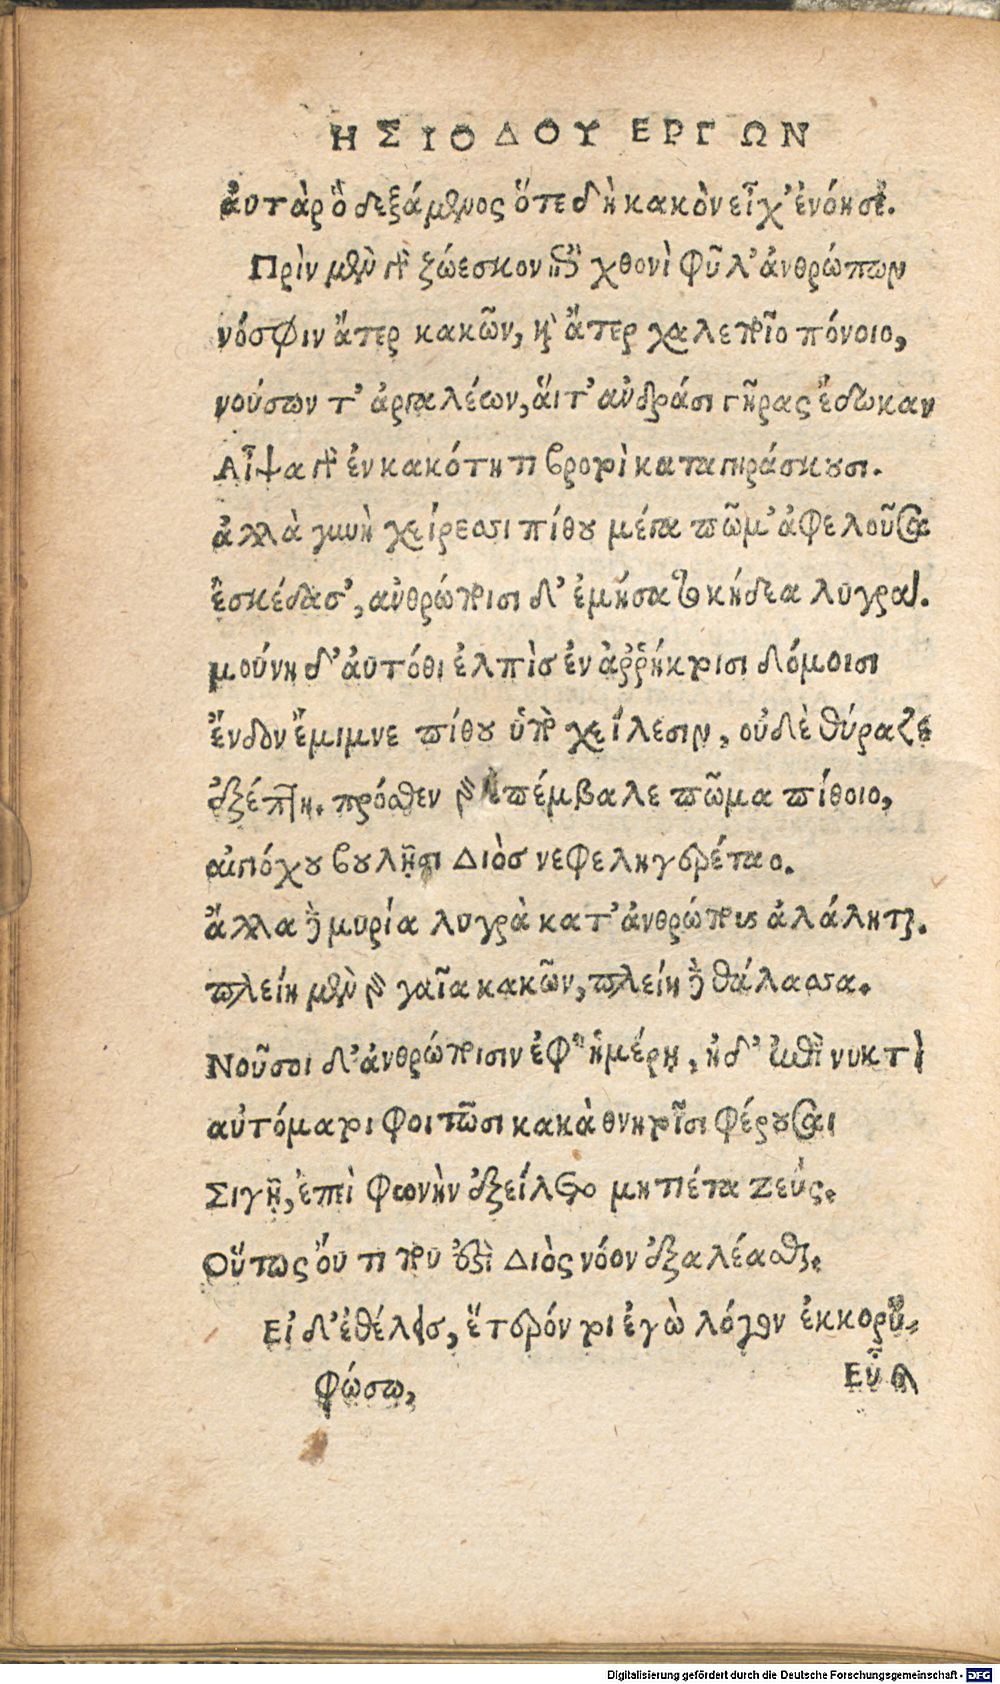 ΗΣΙΟΔΟΥ ΕΡΓΩΝ
ἀυτὰρ ὃ δεξάμενος ὅτε δὴ κακὸν εἶχ' ἐνόησε.
Πρὶν μὲν γὰρ ζώεσκον ἐπὶ χθονὶ φῦλ' ἀνθρώπων
νόσφιν ἄτερ κακῶν, καὶ ἄτερ χαλεποῖο πόνοιο,
νούσων τ' ἀργαλέων, ἅιτ' ἀνδράσι γῆρας ἔδωκαν
Αἶψα γὰρ ἐν κακότητι βροτοὶ καταγηράσκουσι.
ἀλλὰ γυνὴ χείρεσσι πίθου μέγα πῶμ' ἀφελοῦσα
ἐσκέδασ', ἀνθρώποισι δ' ἐμήσατο κήδεα λυγρά.
μούνη δ' ἀυτόθι ἐλπὶσ ἐν ἀῤῥήκτοισι δόμοισι
ἔνδον ἔμιμνε πίθου ὑπὸ χείλεσιν, οὐδὲ θύραζε
ἐξέπτη. πρόσθεν γὰρ ἐπέμβαλε πῶμα πίθοιο,
αἰγιόχου βουλῇσι Διὸσ νεφεληγερέταο.
ἄλλα δὲ μυρία λυγρὰ κατ' ἀνθρώπους ἀλάληται.
πλείη μὲν γὰρ γαῖα κακῶν, πλείη δὲ θάλασσα.
Νοῦσοι δ' ἀνθρώποισιν ἐφ' ἡμέρῃ, ἠδ' ἐπὶ νυκτὶ
αὐτόματοι φοιτῶσι κακὰ θνητοῖσι φέρουσαι
Σιγῇ, ἐπεὶ φωνὴν ἐξείλετο μητιέτα Ζεύς.
Οὕτως ὄυ τι που ἐστὶ Διὸς νόον ἐξαλέασθαι.
Εἰ δ' ἐθέλεις, ἕτερόν τοι ἐγὼ λόγον ἐκκορυ-
φώσω,
Εὖ κ